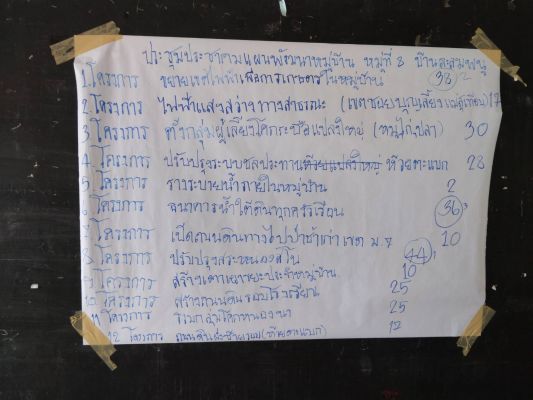 ประชุมประชาคมแผนพัฒนาหมู่บ้าน หมู่ที่ 8 บ้าน
1. โครงการ ขยายเขตไฟฟ้าเพื่อการเกษตรในหมู่บ้าน 38 2
2. โครงการ ไฟฟ้าแสงสว่างทางสาธารณะ (เขตซอยบุญเลี้ยง 17
3 โครงการ ตั้งกลุ่มผู้เลี้ยงโคกระบือแปลงใหญ่ (หมู,ไก่,ปลา) 30
4. โครงการ ปรับปรุงระบบชลประทาน ห้วยตะแบก 28
5 โครงการ รางระบายน้ำภายในหมู่บ้าน 2
6 โครงการ ธนาคารน้ำใต้ดินทุกครัวเรือน 36 3
7 โครงการ เปิดถนนดินทางไปป่าช้าเก่า เขต ม.7 10
8 โครงการ ปรับปรุงสระหนองสิโน 44 1
9 โครงการ สร้างเตาเผาขยะประจำหมู่บ้าน 10
10 โครงการ สร้างถนนดินรอบโรงเรียน 25
11 โครงการ 25
12 โครงการ (ห้วยตะแบก) 12